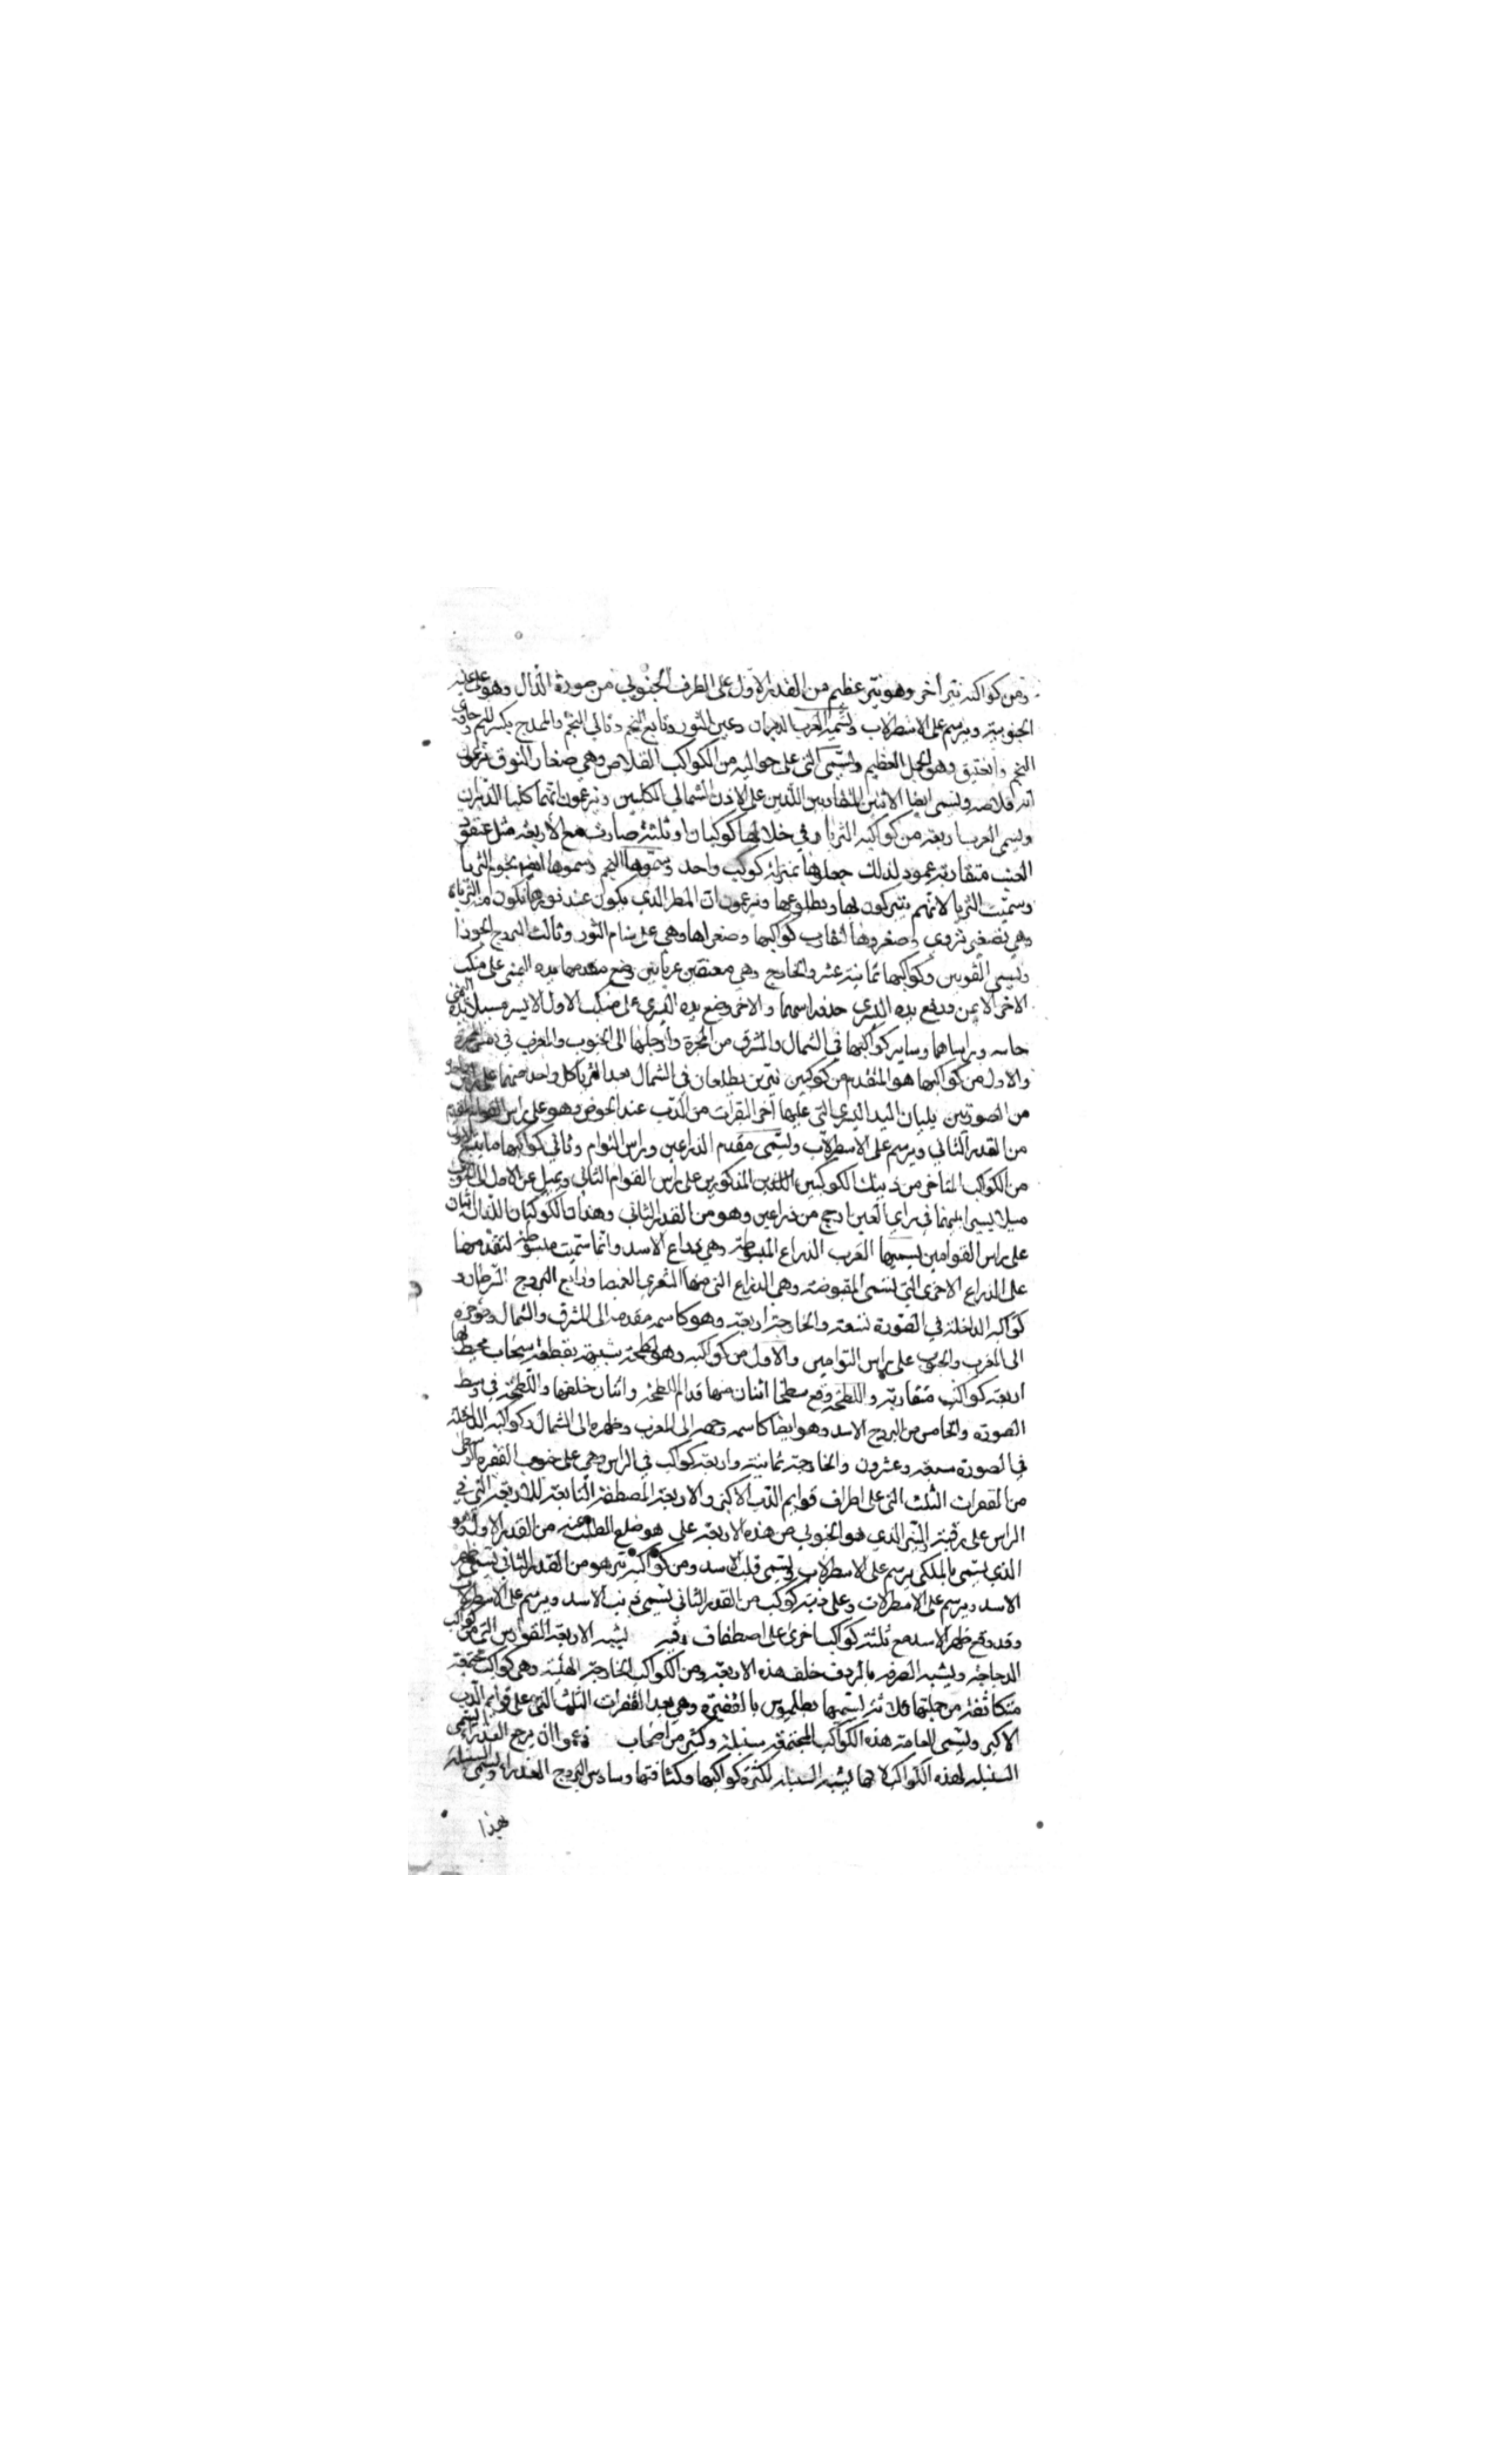 ومن كواكبه نير أخر وهو نير عظيم من القدر الاول على الطرف الجنوبي من صورة الدال وهو على عينه
الجنوبية ويرسم على الاسطرلاب وتسميه العرب الدبران وعين الثور وتابع النجم وتالي النجم والمجدح بكسر الميم وحادي
النجم والفنيق وهو الجمل العظيم وتسمى التي على حواليه من الكواكب القلاص وهي صغار النوق
انه قلاصه وتسمى ايضا الاثنين المتقاربين اللذين على الاذن الشمالي الكلبين ويزعمون انهما كلبا الدبران
وتسمى العرب اربعة من كواكبه الثريا وفي خلالها كوكبان او ثلثة صارت مع الاربعة مثل عنقود
العنب متقاربة لذلك جعلوها بمنزلة كوكب واحد وسموها النجم وسموها ايضا نجوم الثريا
وسميت الثريا لانهم يتبركون بها وبطلوعها ويزعمون ان المطر الذي يكون عند نوءها تكون منه الثروة
وهي تصغير ثروى وصغروها لتقارب كواكبها وصغرها وهي على سنام الثور وثالث البروج الجوزا
وكواكبها ثمانية عشر والخارج وهي معتنقين عريانين وضع مقدمهما يده اليمنى على منكب
الاخر الايمن ورفع يده اليسرى والاخر وضع يده اليسرى على منكب الاول الايسر مسبلا يده اليمنى
وراساهما وساير كواكبها في الشمال والمشرق من المجرة وارجلهما الى الجنوب والمغرب في المجرة
والاول من كواكبها هو المتقدم من كوكبين نيرين يطلعان في الشمال بعد الثريا كل واحد منهما على راس
من الصورتين يليان اليد اليسرى التي عليها آخر القفزات من الدب عند الحوض وهو على راس التوام المقدم
من القدر الثاني ويرسم على الاسطرلاب ويسمى مقدم الذراعين وراس التوام وثاني كواكبها
من الكواكب المتاخر من ذينك الكوكبين المذكورين على راس التوام الثاني ويميل عن الاول الى الجنوب
ميلا يسيرا بينهما في راي العين ارجح من ذراعين وهو من القدر الثاني وهذان الكوكبان اللذان
على راس التوامين يسميهما العرب الذراع المبسوطة وهي ذراع الاسد وانما سميت مبسوطة لتقدمها
على الذراع الاخرى التي تسمى المقبوضة وهي الذراع التي منها الشعرى الغميصا ورابع البروج السرطان و
كواكبه الداخلة في الصورة تسعة والخارجة اربعة وهو كاسمه مقدمه الى المشرق والشمال ومؤخره
الى المغرب والجنوب على راس التوامين والاول من كواكبه وهو لطخة شبيهة بقطعة سحاب محيط بها
اربعة كواكب متقاربة واللطخة وسطها اثنان منها قدام اللطخة واثنان خلفها واللطخة في وسط
الصورة والخامس من البروج الاسد وهو ايضا كاسمه وجهه الى المغرب وظهره الى الشمال وكواكبه الداخلة
في الصورة سبعة وعشرون والخارجة ثمانية واربعة كواكب في الراس وهي على جنوب القفزة الوسطى
من القفزات الثلث التي على اطراف قوايم الدب الاكبر والاربعة المصطفة التابعة للاربعة التي في
الراس على رقبته النير الذي هو الجنوبي من هذه الاربعة على من القدر الاول وهو
الذي يسمى بالملكي يرسم على الاسطرلاب ويسمى قلب الاسد ومن كواكبه نير هو من القدر الثاني يسمى ظهر
الاسد ويرسم على الاسطرلاب وعلى ذنبه كوكب من القدر الثاني يسمى ذنب الاسد ويرسم على الاسطرلاب
وقد وقع ظهر الاسد مع ثلثة كواكب اخرى على اصطفاف يشبه الاربعة الفوارس التي من كواكب
الدجاجة ويشبه الصرفة بالردف خلف هذه الاربعة ومن الكواكب الخارجة الهلبة وهي كواكب مجتمعة
متكاثفة من جملتها ثلاثة يسميها بطلميوس بالضفيرة وهي بعد القفزات الثلث التي على قوايم الدب
الاكبر وتسمى العامة هذه الكواكب المجتمعة سنبلة وكثير من اصحاب زعموا ان برج العذراء
السنبلة لهذه الكواكب لانها يشبه السنبلة لكثرة كواكبها وكثافتها وسادس البروج العذراء ويسمى السنبلة
هذا